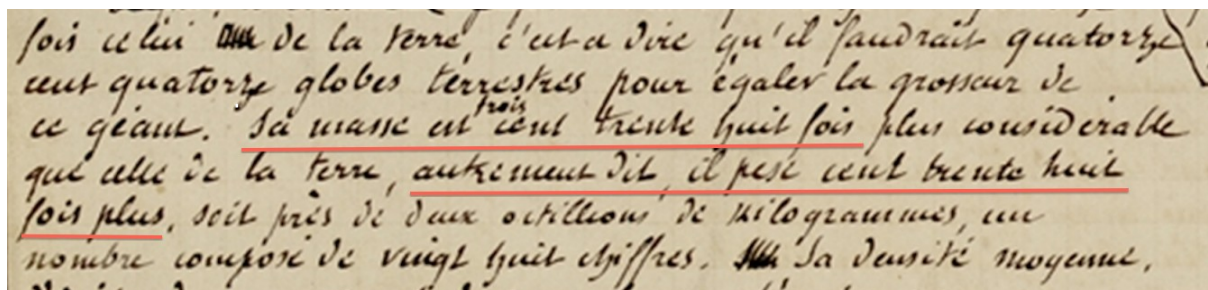 fois celui de la terre, c'est a dire qu'il faudrait quatorze
cent quatorze globes terrestres pour égaler la grosseur de
ce géant. Sa masse est trois cent trente huit fois plus considérable
que celle de la terre, autrement dit, il pese cent trente huit
fois plus, soit près de deux octillions de kilogrammes, un
nombre composé de vingt huit chiffres. Sa densité moyenne,